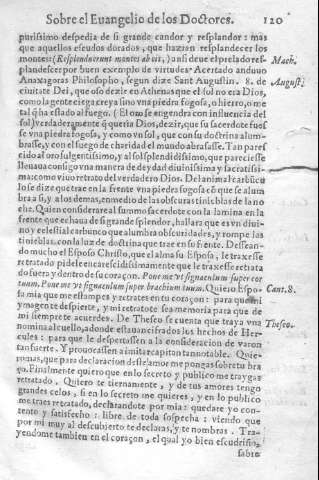 Sobre el Euangelio de los Doctores. 120
purissimo despedia de si grande candor y resplandor: mas
que aquellos escudos dorados, que hazian resplandecer los
montes (Resplenduerunt montes ab eis,) ansi deue el prelado res- Mach.
plandescer por buen exemplo de virtudes. Acertado anduuo
Anaxagoras Philosopho, segun dize Sant Augustin. 8. de August.
ciuitate Dei, que oso dezir en Athenas que el sol no era Dios,
como la gente ciega creya sino vna piedra fogosa, o hierro, o me
tal q̃ ha estado al fuego. (El oro se engendra con influencia del
sol) verdaderamente q̃ queria Dios, dezir, que su sacerdote fuesse
vna piedra fogosa, y como vn sol, que con su doctrina alum-
brasse, y con el fuego de charidad el mundo abrasasse. Tan pares
cido al oro fulgentissimo, y al sol splendidissimo, que paresciesse
lleuaua consigo vna manera de deydad diuinissima y sacratissi-
ma: como viuo retrato del verdadero Dios. Del animal carbūco
lo se dize que trae en la frente vna piedra fogosa cō que se alum
bra a si, y a los demas, en medio de las obscuras tinieblas de la no
che. Quien considerare al summo sacerdote con la lamina en la
frente que echaua de si grande splendor, hallara que es vn diui-
no y celestial carbunco que alumbra obscuridades, y rompe las
tinieblas. con la luz de doctrina que trae en su frente. Dessean-
do mucho el Esposo Christo, que el alma su Esposa, le traxesse
retratado pidele encarescidissimamente que le traxesse retrata
do fuera y dentro de su coraçon. Pone me vt signaculum super cor
tuum. Pone me vt signaculum super brachium tuum. Quiero Espo- Cant. 8.
sa mia que me estampes y retrates en tu coraçon: para que mi
ymagen te despierte, y mi retrato te sea memoria para que de
mi siempre te acuerdes. De Theseo se cuenta que traya vna Theseo.
nomina al cuello, adonde estauan cifrados los hechos de Her-
cules: para que le despertassen a la consideracion de varon
tan fuerte. Y prouocassen a imitar capitan tan notable. Quie-
ro mas, que para declaracion desse amor me pongas sobre tu bra
ço. Finalmente quiero que en lo secreto y publico me traygas
retratado. Quiero te tiernamente, y de tus amores tengo
grandes celos, si en lo secreto me quieres, y en lo publico
me traes retratado, declarandote por mia: quedare yo con-
tento y satisfecho: libre de toda sospecha: viendo que
por mi muy al descubierto te declaras, y te nombras. Tra-
yendome tambien en el coraçon, el qual yo bien escudriño,
sabre